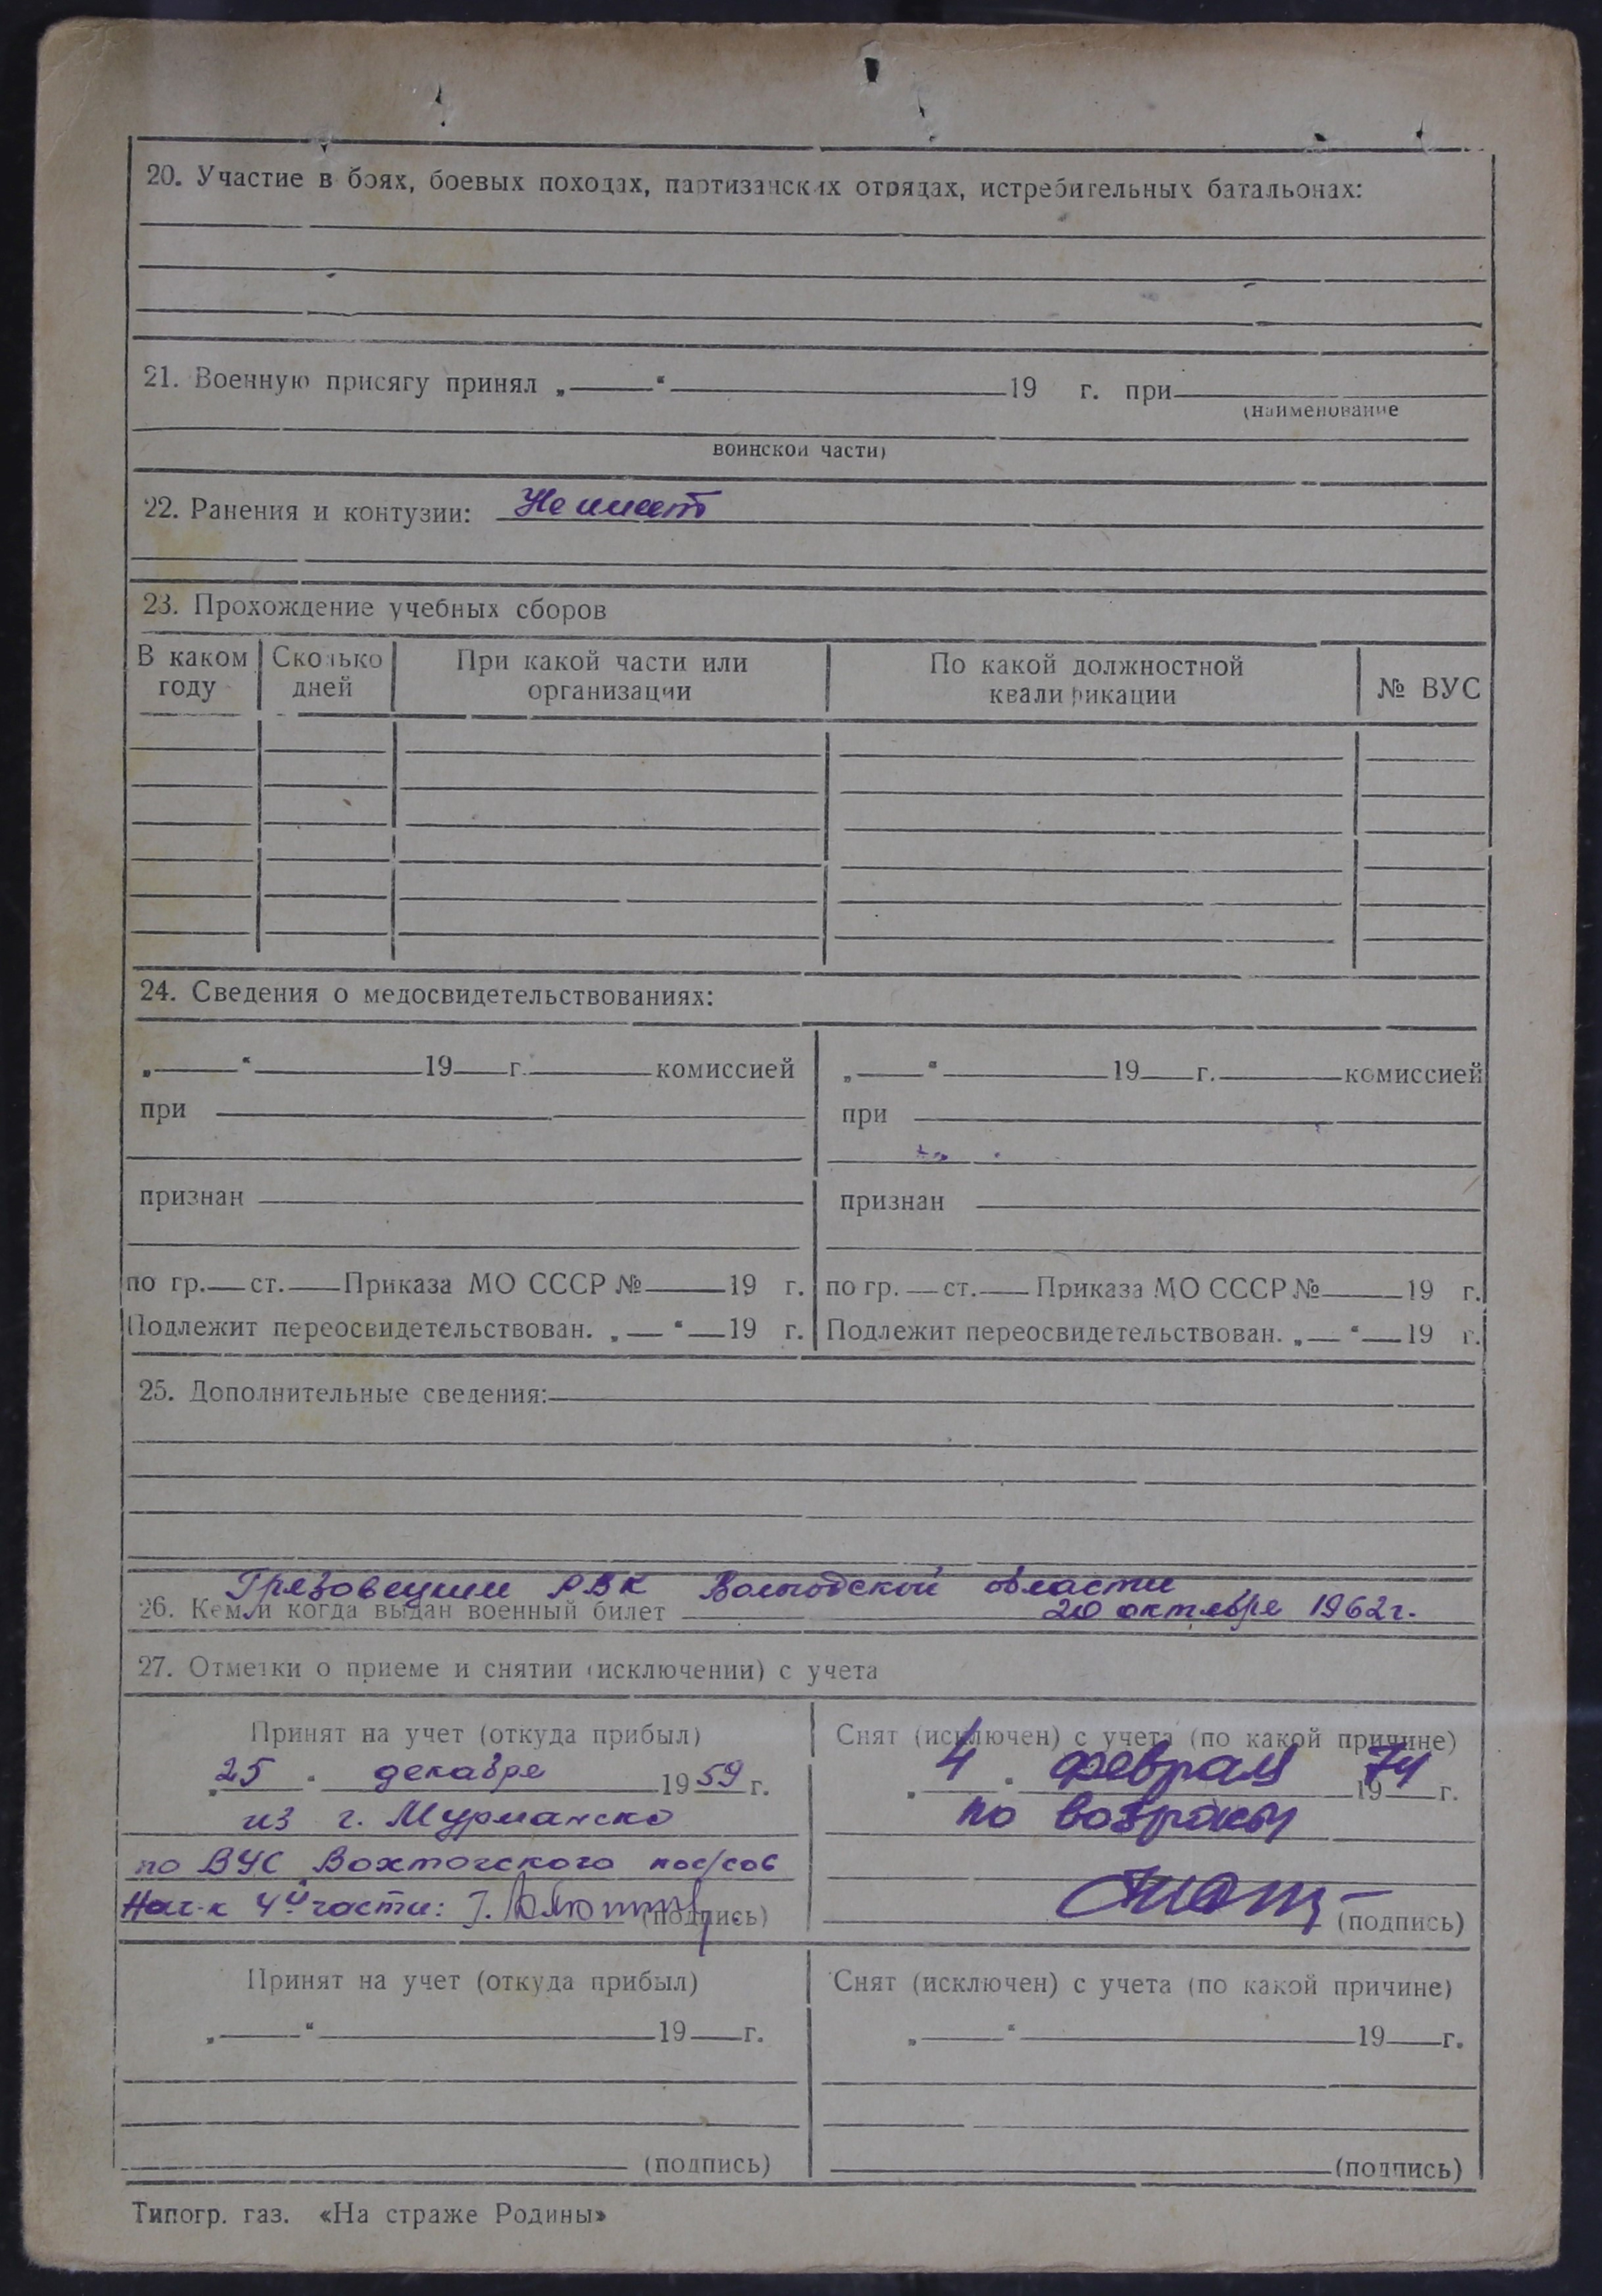 20. Участие в боях, боевых походах, партизанских отрядах, истребительных батальонах:
21. Военную присягу принял „ “ 19 г. при
(наименование
воинской части)
22. Ранения и контузии: Не имеет
23. Прохождение учебных сборов
В каком году Сколько дней При какой части или организации По какой должностной квалификации № ВУС
24. Сведения о медосвидетельствованиях:
„ “ 19 г. комиссией „ “ 19 г. комиссией
при при
признан признан
по гр. ст. Приказа МО СССР № 19 г. по гр. ст. Приказа МО СССР № 19 г.
Подлежит переосвидетельствован. „ “ 19 г. Подлежит переосвидетельствован. „ “ 19 г.
25. Дополнительные сведения:
Грязовецким РВК Вологодской области
26. Кем и когда выдан военный билет 20 октября 1962 г.
27. Отметки о приеме и снятии (исключении) с учета
Принят на учет (откуда прибыл) Снят (исключен) с учета (по какой причине)
„25“ декабря 1959 г. „4“ февраля 1974 г.
из г. Мурманска по возрасту
по ВУС Вохтогского пос/сов
Нач-к 4й части: (подпись) (подпись)
Принят на учет (откуда прибыл) Снят (исключен) с учета (по какой причине)
„ “ 19 г. „ “ 19 г.
(подпись) (подпись)
Типогр. газ. «На страже Родины»